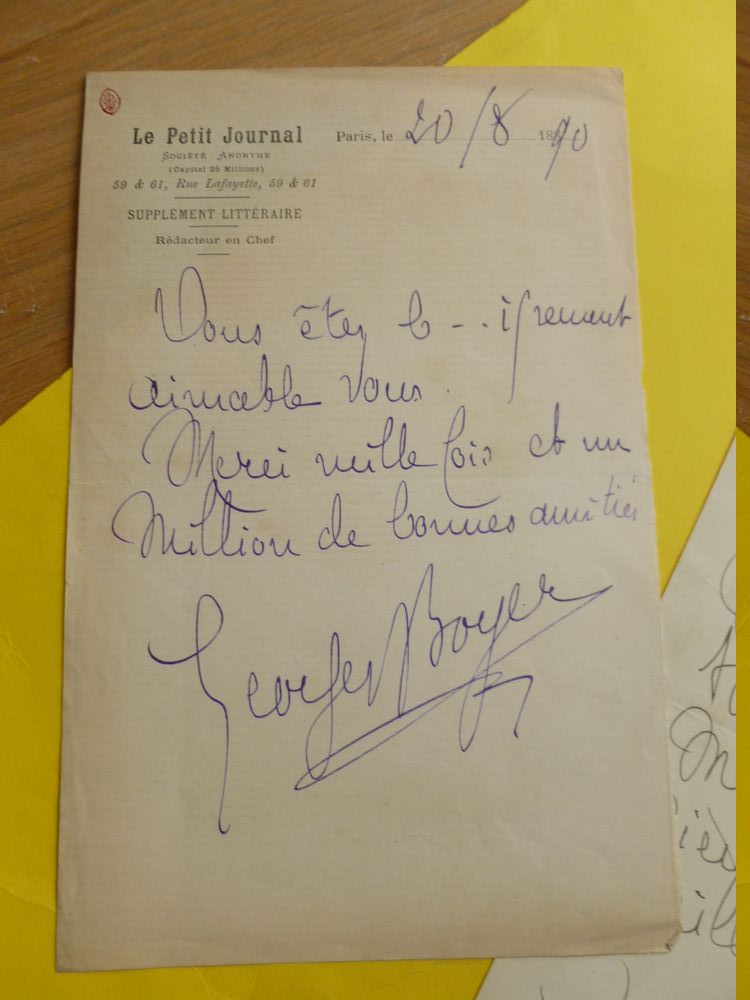 Le Petit Journal
Société Anonyme
(Capital 25 Millions)
59 & 61, Rue Lafayette, 59 & 61
SUPPLÉMENT LITTÉRAIRE
Rédacteur en Chef
Paris, le 20/8 1890
Vous êtes
aimable vous.
Merci mille fois et un
Million de bonnes amitiés
Georges Boyer